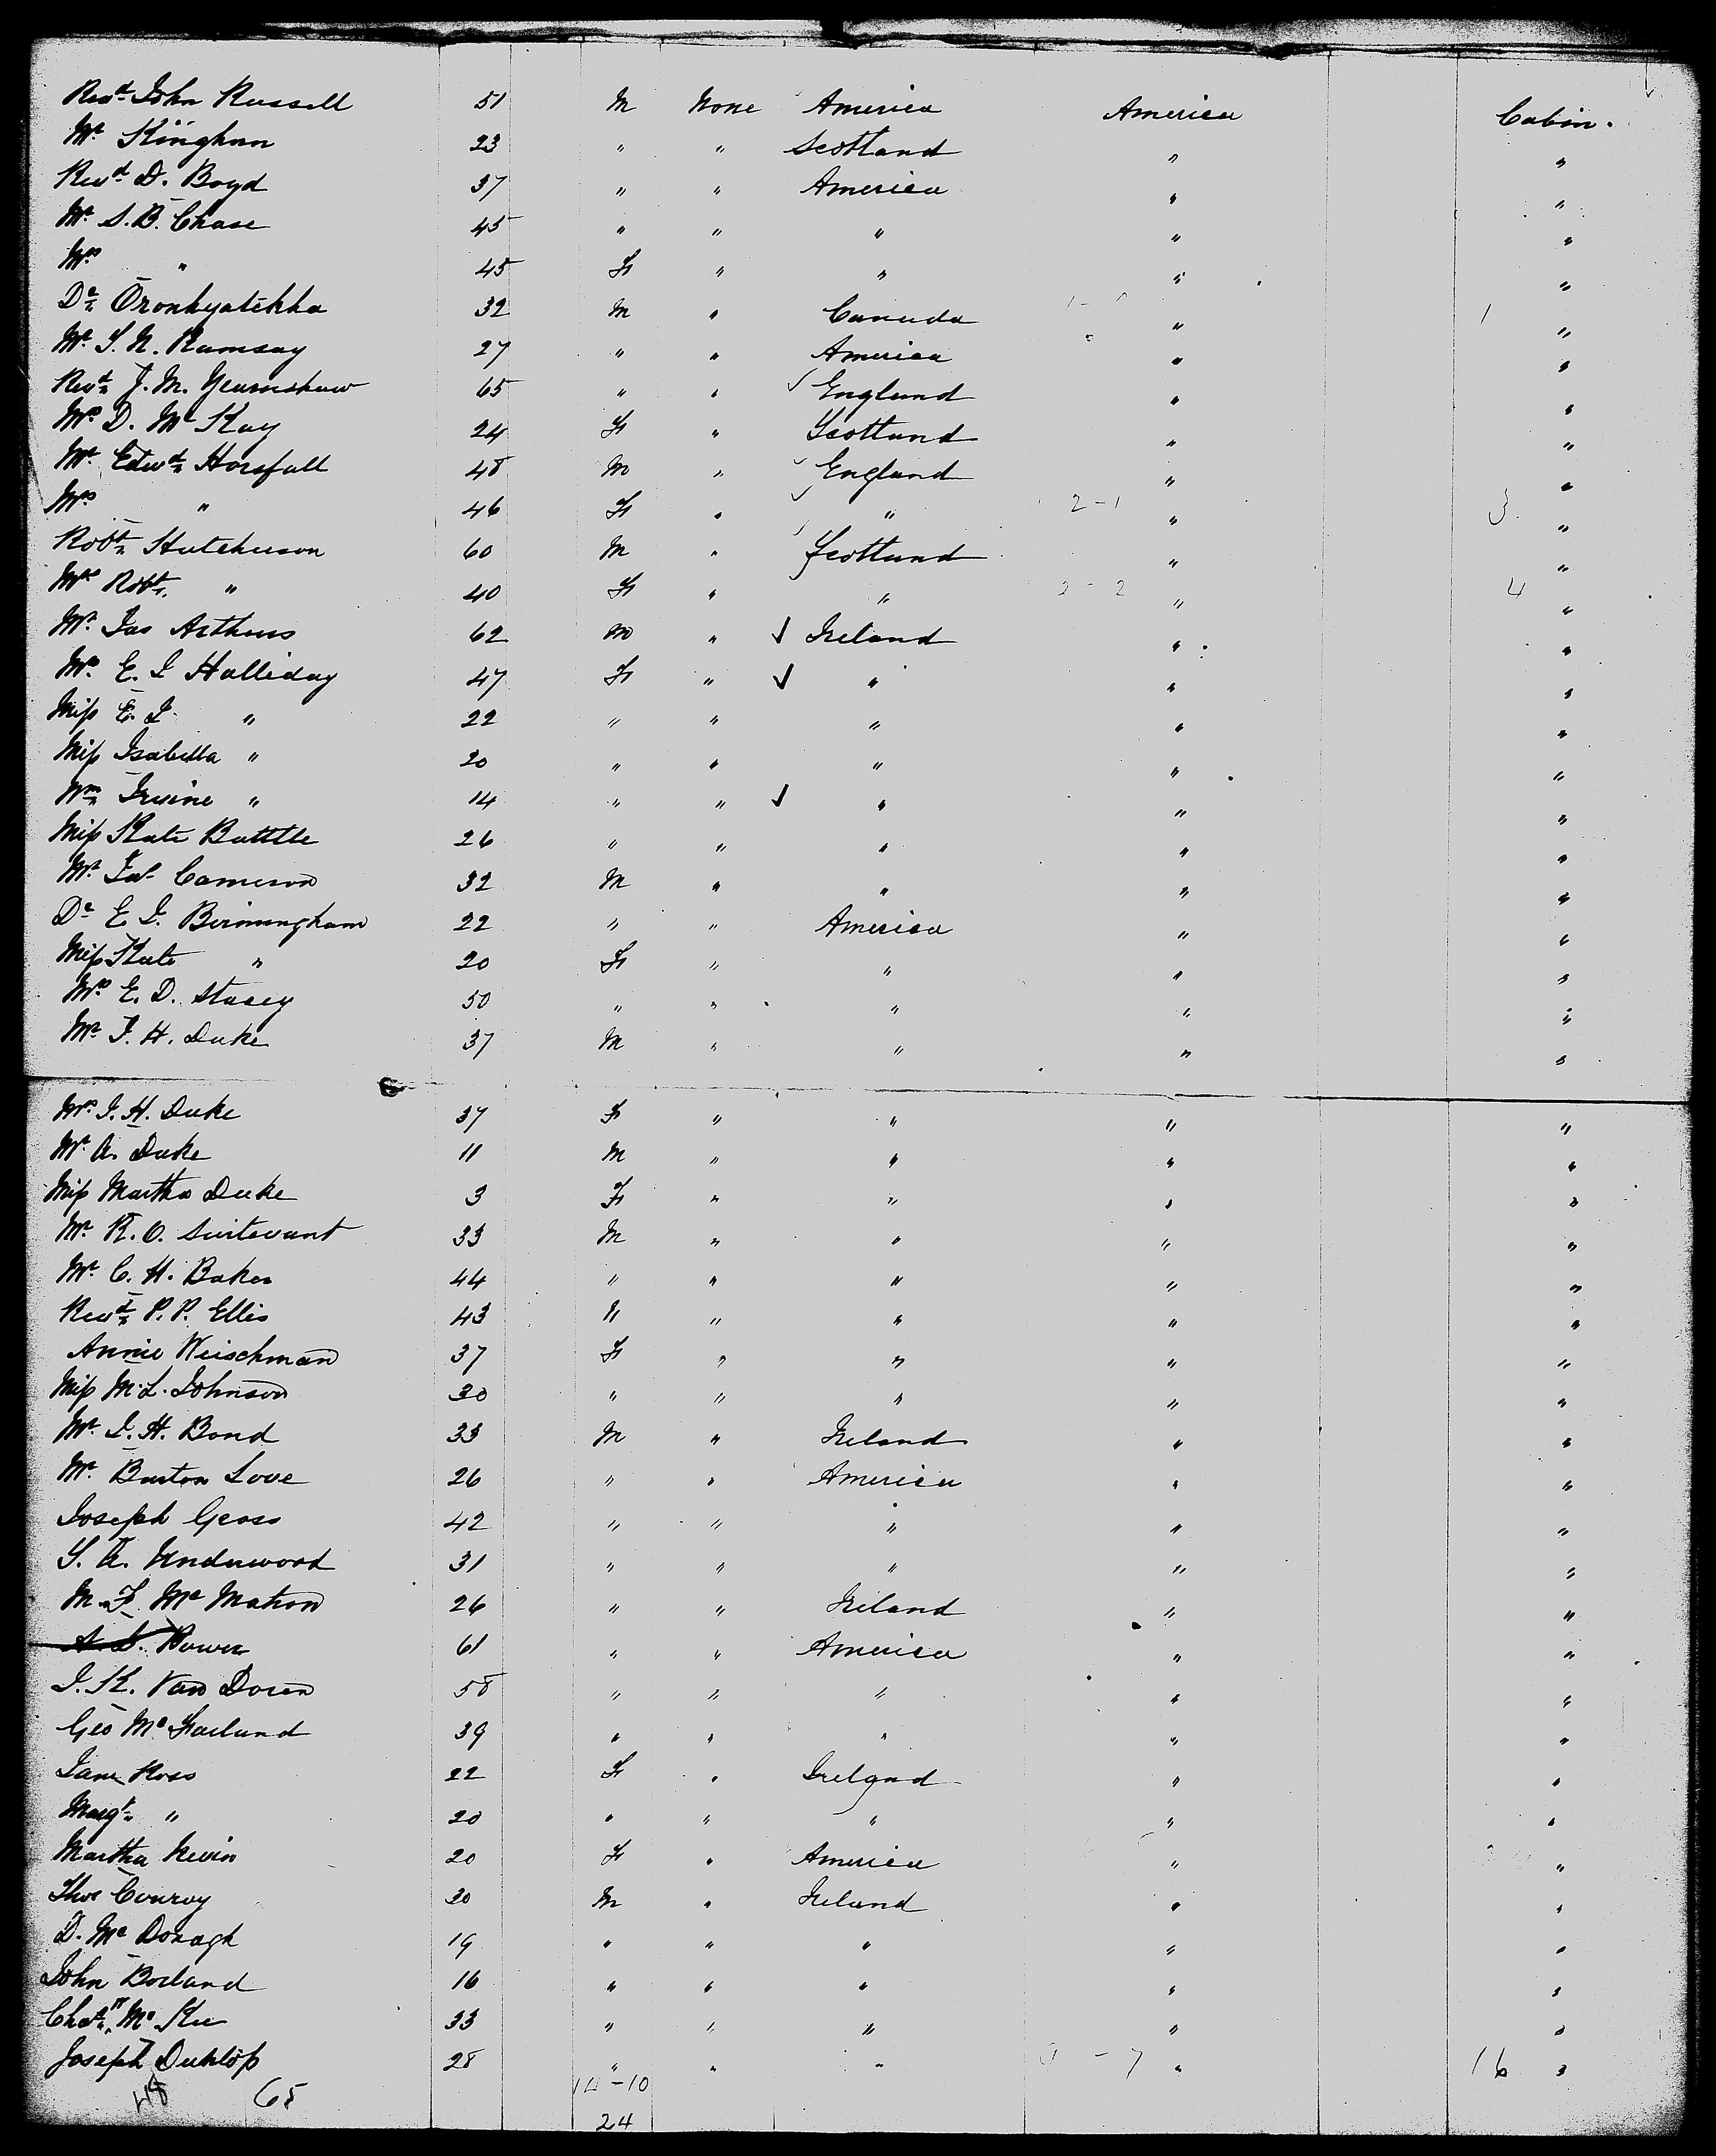 Revd John Russell 51 M None America America Cabin.
Mr Kinghan 23 " " Scotland " "
Revd D. Boyd 37 " " America " "
Mr S. B. Chase 45 " " " " "
Mrs " 45 F " " " "
Dr Oronhyatekha 32 M " Canada " 1 "
Mr S. N. Ramsay 27 " " America " "
Revd J. M. Yearnshaw 65 " " ✓ England " "
Mrs D. Mc Kay 24 F " Scotland " "
Mr Edwd Horsfall 48 M " ✓ England " "
Mrs " 46 F " ✓ " 2-1 " 3 "
Robt Hutcheson 60 M " Scotland " "
Mrs Robt " 40 F " " 2-2 " 4 "
Mr Jas Arthurs 62 M " ✓ Ireland " "
Mrs E. J Halliday 47 F " ✓ " " "
Miss E. J. " 22 " " " " "
Miss Isabella " 20 " " " " "
Wm Irvine " 14 " " ✓ " " "
Miss Kate Batttle 26 " " " " "
Mr Jas Cameron 32 M " " " "
Dr E. J. Birmingham 22 " " America " "
Miss Kate " 20 F " " " "
Mrs E. D. Stacey 50 " " " " "
Mr J. H. Duke 37 M " " " "
Mrs J. H. Duke 37 F " " " "
Mr A. Duke 11 M " " " "
Miss Martha Duke 3 F " " " "
Mr R. O. Surtevant 33 M " " " "
Mr C. H. Baker 44 " " " " "
Revd P. P. Ellis 43 " " " " "
Annie Weischman 37 F " " " "
Miss M. L. Johnson 30 " " " " "
Mr J. H. Bond 33 M " Ireland " "
Mr Burton Love 26 " " America " "
Joseph Gross 42 " " " " "
S. A. Underwood 31 " " " " "
M. F. Mc Mahon 26 " " Ireland " "
A. S. Power 61 " " America " "
J. K. Van Doren 58 " " " " "
Geo Mc Farland 39 " " " " "
Jane Ross 22 F " Ireland " "
Margt " 20 " " " " "
Martha Nevin 20 F " America " "
Thos Conroy 30 M " Ireland " "
D. Mc Donagh 19 " " " " "
John Borland 16 " " " " "
Chas Mc Kee 33 " " " " "
Joseph Dunlop 28 " " " 9-7 " 16 "
48 65 14-10
24